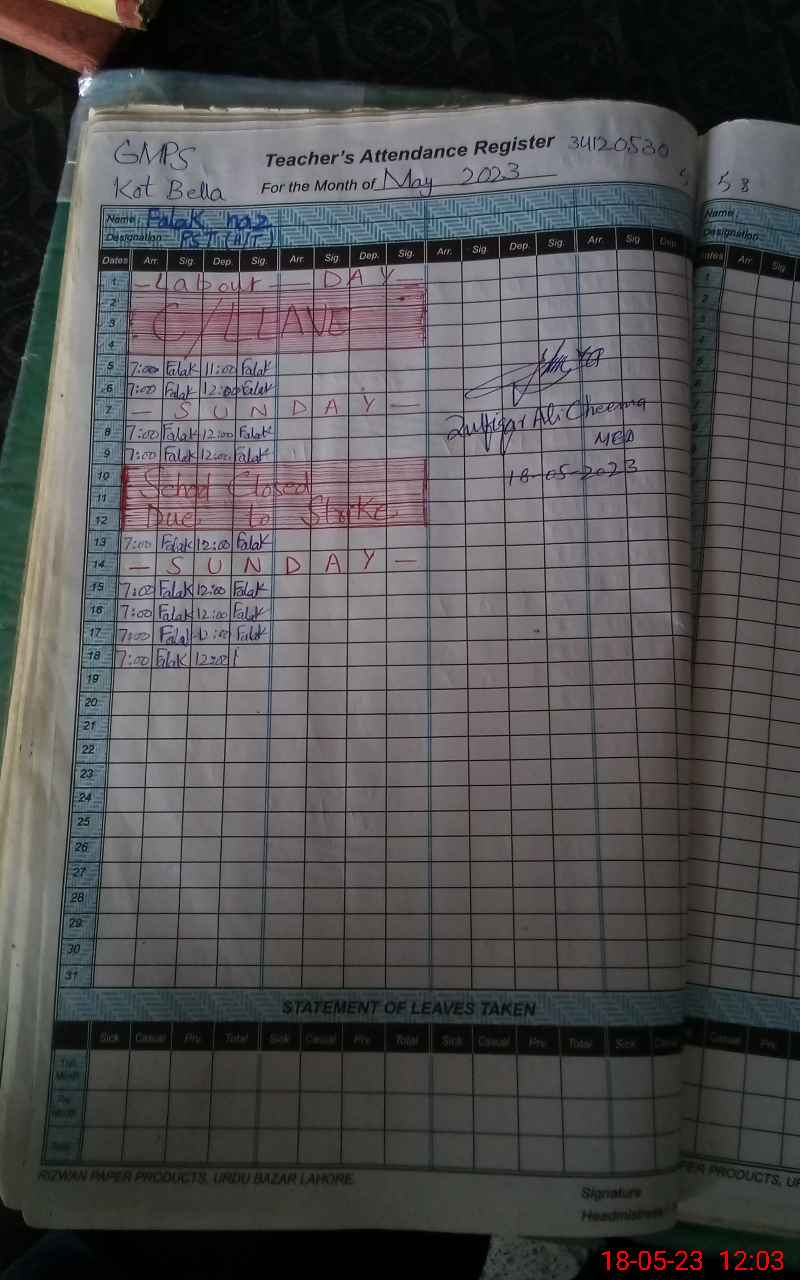 GMPS Teacher's Attendance Register 34120530
Kot Bella For the Month of May 2023
58
Name: Falak naz
Designation PST (H/T)
Dates Arr. Sig. Dep. Sig. Arr. Sig. Dep. Sig. Arr. Sig. Dep. Sig. Arr. Sig Dep.
1 - Labour - DAY -
2
3 C/LEAVE
4
5 7:00 Falak 11:00 Falak
6 7:00 Falak 12:00 Falak
7 - SUNDAY -
8 7:00 Falak 12:00 Falak
Zulfiqar Ali Cheema
9 7:00 Falak 12:00 Falak
MEA
10 School Closed
18-05-2023
11
12 Due to Strike
13 7:00 Falak 12:00 Falak
14 - SUNDAY -
15 7:00 Falak 12:00 Falak
16 7:00 Falak 12:00 Falak
17 7:00 Falak 12:00 Falak
18 7:00 Falak 12:00
19
20
21
22
23
24
25
26
27
28
29
30
31
STATEMENT OF LEAVES TAKEN
Sick Casual Prv. Total Sick Casual Prv. Total Sick Casual Prv. Total Sick Casual
RIZWAN PAPER PRODUCTS, URDU BAZAR LAHORE.
Signature
Headmistress
Name:
Designation
Dates Arr. Sig.
1
2
3
4
Casual Prv.
PER PRODUCTS, UR
18-05-23 12:03